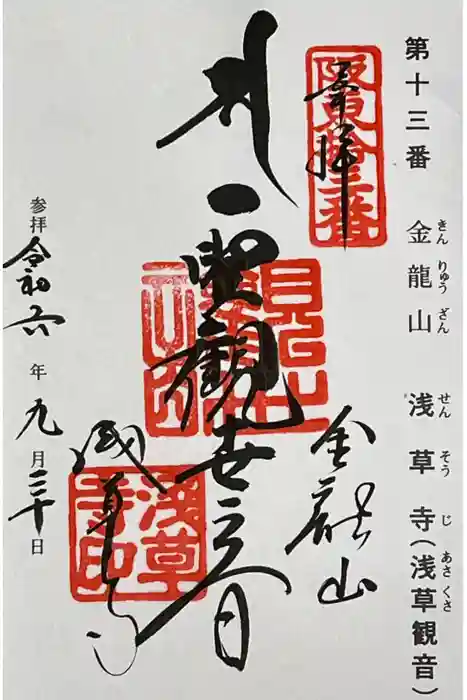 第十三番 金龍山 浅草寺(浅草観音)
きん りゅう ざん せん そう じ あさ くさ
奉拝
阪東拾三番
金龍山
聖観世音
浅草寺
浅草寺印
参拝 令和六年九月三十日